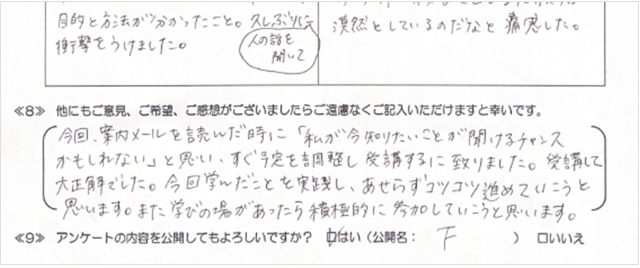 目的と方法が分かったこと。久しぶりに
衝撃をうけました。
人の話を
聞いて
漠然としているのだなと痛感した。
≪8≫ 他にもご意見、ご希望、ご感想がございましたらご遠慮なくご記入いただけますと幸いです。
今回、案内メールを読んだ時に「私が今知りたいことが聞けるチャンス
かもしれない」と思い、すぐ予定を調整し受講するに致りました。受講して
大正解でした。今回学んだことを実践し、あせらずコツコツ進めていこうと
思います。また学びの場があったら積極的に参加していこうと思います。
≪9≫ アンケートの内容を公開してもよろしいですか？ ☑はい（公開名： F ） □いいえ